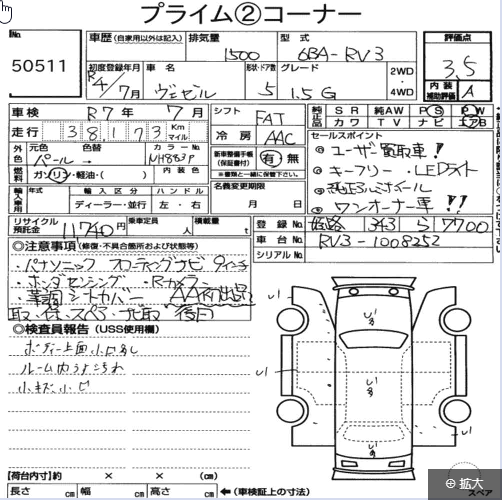 プライム②コーナー
No. 車歴 (自家用以外は記入) 排気量 型式 評価点
50511 1500 6BA-RV3 3.5
初度登録年月 車名 形状・ドア数 グレード 2WD・4WD 内装補助評価 A
R4/7月 ヴェゼル 5 1.5G
車検 R7年7月 シフト FAT 純正品 SR 純AW PS PW
カワ TV ナビ エアB
走行 38173 Km マイル 冷房 AAC セールスポイント
外色 元色 色替 カラーNo. 新車整備手帳(保証書付) 有・無 ◎ユーザー買取車!!
パール→ NH883P ※書類と一緒に保管下さい。 ◎キーフリー・LEDライト
燃料 ガソリン・軽油・( ) 内装色 名義変更期限
輸入車用 年式 輸入区分 ハンドル 月 日
ディーラー・並行 左・右 ◎ワンオーナー車!!
リサイクル預託金 11740円 乗車定員 人 積載量 t 登録No. 343 5 7700
◎注意事項 (修復・不具合箇所および状態等) 車台No. RV3-1008252
・パナソニック フローティングナビ 9インチ シリアルNo.
・ホンダセンシング ・Rカメラ
・革調シートカバー
取・保・スペアキー 後日
◎検査員報告 (USS使用欄)
ボディー上面小
ルーム内うすよごれ
小キズ小
U1
U1
U1
U1
U1
【荷台内寸】約 × × (cm)
長さ cm 幅 cm 高さ cm ←(車検証上の寸法)
スペア
拡大